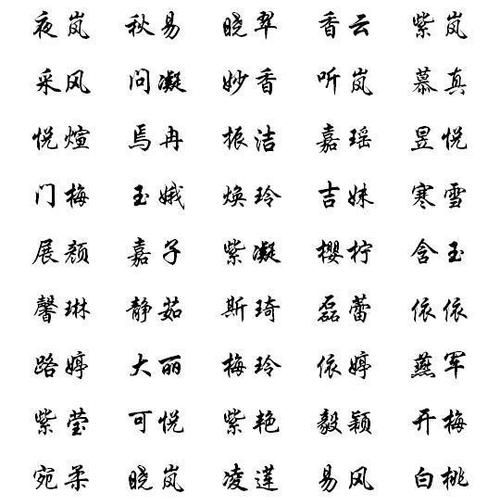 夜岚 秋易 晓翠 香云 紫岚
采风 问凝 妙香 听岚 慕真
悦煊 焉冉 振洁 嘉瑶 昱悦
门梅 玉娥 焕玲 吉妹 寒雪
展颜 嘉子 紫凝 樱柠 含玉
馨琳 静茹 斯琦 磊蕾 依依
路婷 大丽 梅玲 依婷 燕军
紫莹 可悦 紫艳 毅颖 开梅
宛柔 晓岚 凌莲 易风 白桃